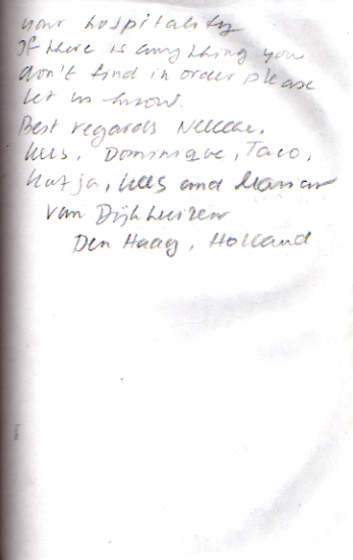 your hospitality
If there is anything you
don't find in order please
let us know.
Best regards
Kees, Dominique, Taco,
Katja, Kees and
van Dijkhuizen
Den Haag, Holland